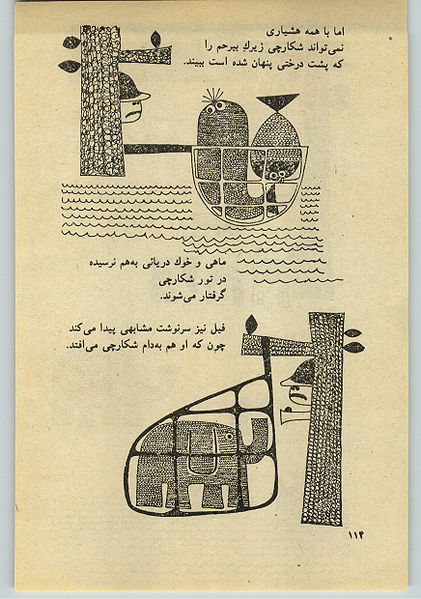 اما با همه هشیاری
نمی‌تواند شکارچی زیرك بیرحم را
که پشت درختی پنهان شده است ببیند.
ماهی و خوك دریائی به‌هم نرسیده
در تور شکارچی
گرفتار می‌شوند.
فیل نیز سرنوشت مشابهی پیدا می‌کند
چون که او هم به‌دام شکارچی می‌افتد.
۱۱۴